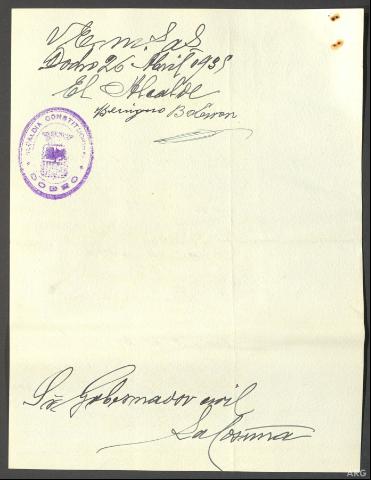 Dodro 26 Abril 1935
El Alcalde
Benigno
ALCALDIA CONSTITUCIONAL
DODRO
Sr. Gobernador civil
La Coruña
ARG